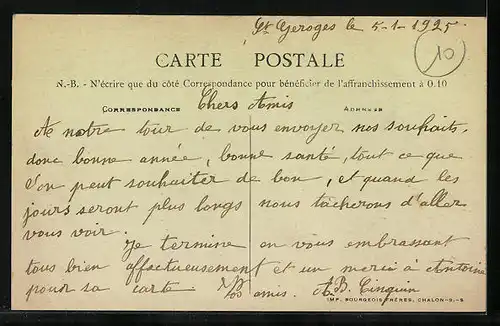 St Geroges le 5-1-1925
10
CARTE POSTALE
N.-B. - N'écrire que du côté Correspondance pour bénéficier de l'affranchissement à 0.10
CORRESPONDANCE Chers Amis ADRESSE
A notre tour de vous envoyer nos souhaits,
donc bonne année, bonne santé, tout ce que
l'on peut souhaiter de bon, et quand les
jours seront plus longs nous tâcherons d'aller
vous voir.
Je termine en vous embrassant
tous bien affectueusement et un merci à Antoine
pour sa carte Vos amis. A.B. Cinquin
IMP. BOURGEOIS FRÈRES, CHALON-S.-S